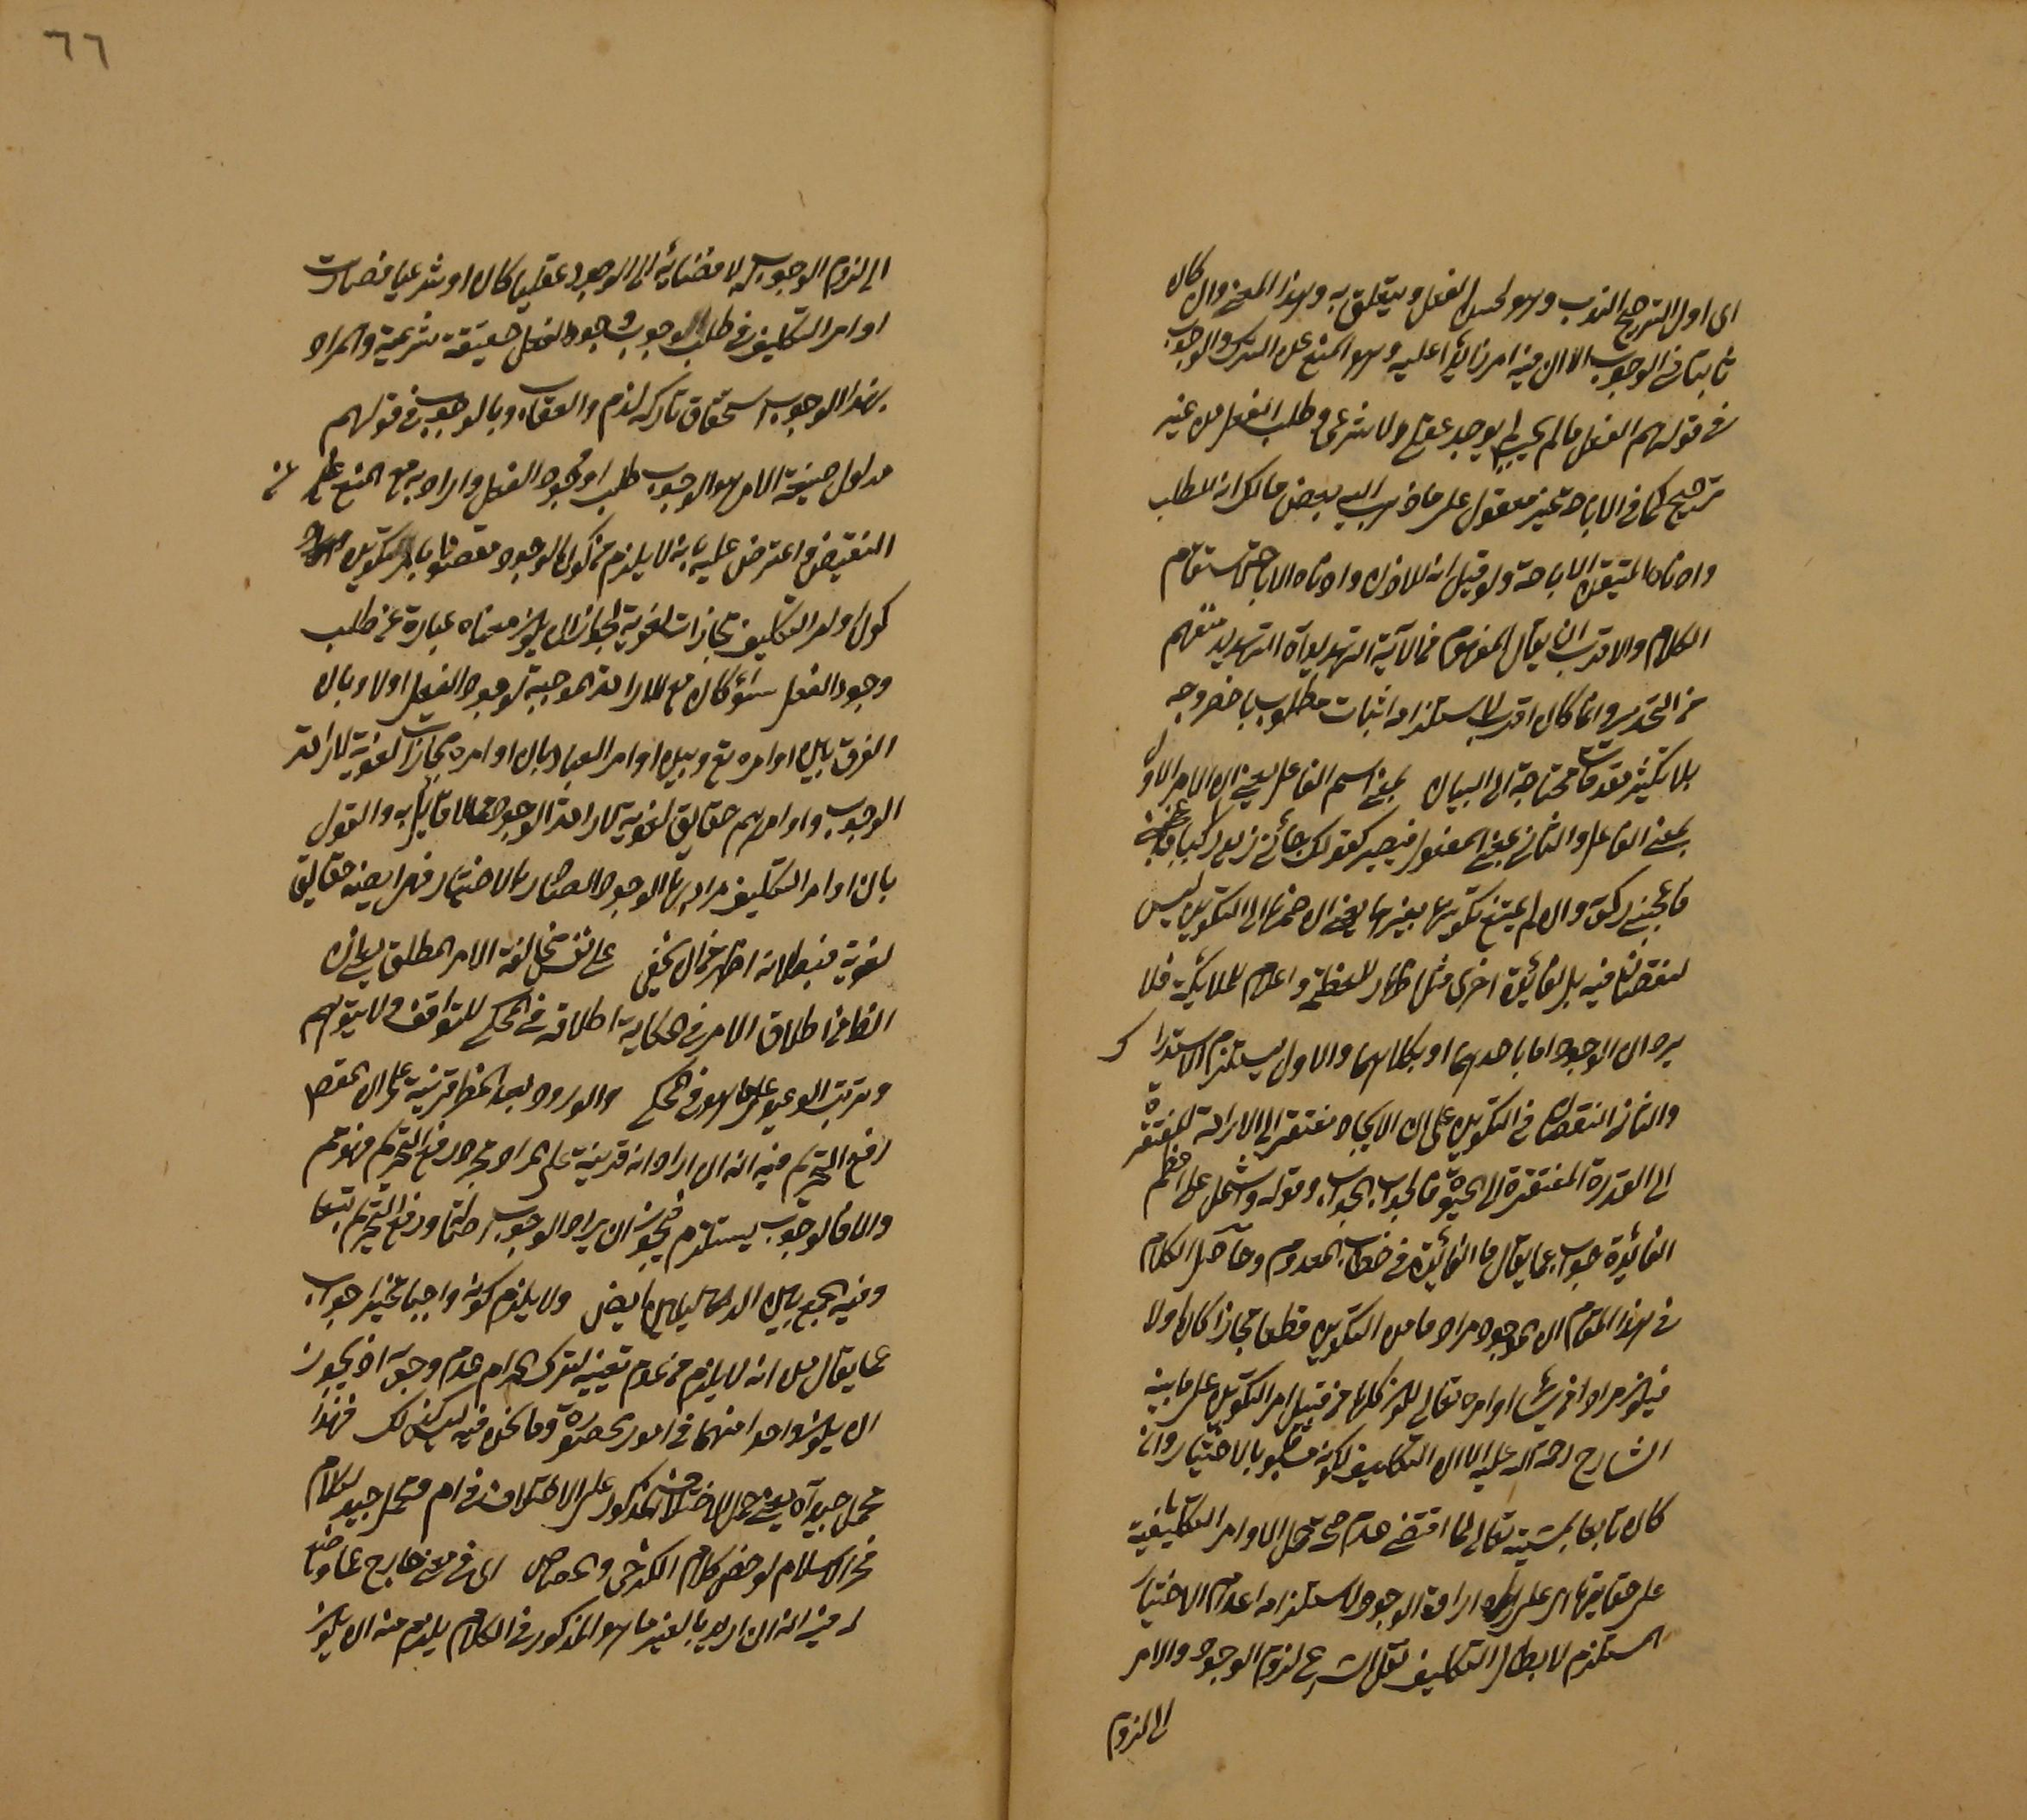 اى اول الترجيح الندب وهو لحسن الفعل ويتعلق به وهذا المعنى وان كان
ثابتا فى الوجوب الا ان فيه امر زائدا عليه وهو المنع عن الترك والوجوب
فى قولهم الفعل ما لم يجب لم يوجد عقلى ولا شرعى وطلب الفعل من غير
ترجيح كما فى الاباحة غير معقول على ما ذهب اليه بعض مالك انه لطلب
وادناه المتيقن الاباحة ولو قيل انه للاذن وادناه الاباحة لاستقام
الكلام والاقرب ان يقال المفهوم من الآية التهديد آه التهديد منفهم
من التحذير وانما كان اقرب لاستلزامه اثبات مطلوب باخصر وجه
بلا تكثير مقدمات محتاجة الى البيان بمعنى اسم الفاعل يعنى ان الامر الاول
بمعنى الفاعل والثانى بمعنى المفعول فيصير كقولك جائنى زيد راكبا
فاعجبنى ركوبه وان لم يمتنع تكوينها بغيرها يعنى ان ضمها الى التكوين ليس
لنقصان فيه بل لفائدة اخرى مثل اظهار العظمة واعلام الملائكة فلا
يرد ان الوجود اما باحدهما او بكلاهما والاول يستلزم الاستدراك
والثانى النقصان فى التكوين على ان الايجاد مفتقر الى الارادة المفتقرة
الى القدرة المفتقرة الى الحيوة فالجواب الجواب وقوله واشتمل على اعظم
الفائدة جواب عما يقال ما الفائدة فى خطاب المعدوم وحاصل الكلام
فى هذا المقام ان الوجود مراد ما من التكوين قطعا مجازا كان اولا
فيكون مرادا فى سائر اوامره تعالى لكون كلها من قبيل امر التكوين على ما بينه
الشارح رحمه الله عليه الا ان التكليف لكونه مشوبا بالاختيار وان
كان تابعا لمشيته تعالى لما اقتضى عدم صحة حمل الاوامر التكليفية
على حقايقها اى على ارادة الوجود لاستلزامه اعدام الاختيار
المستلزم لابطال التكليف نقل الشرع لزوم الوجود والامر
الى لزوم
٦٦
الى لزوم الوجوب لافضائه الى الوجود عقليا كان او شرعيا فصارت
اوامر التكليف فى طلب وجوب وجود الفعل حقيقة شرعية والمراد
بهذا الوجوب استحقاق تاركه الذم والعقاب وبالوجوب فى قولهم
مدلول صيغة الامر هو الوجوب طلب وجود الفعل وارادته مع المنع عن
النقيض واعترض عليه بانه لا يلزم من كون الوجود مقصودا بامر التكوين
كون اوامر التكليف مجازات لغوية لجواز ان يكون معناه عبارة عن طلب
وجود الفعل سواء كان مع الارادة الموجبة لوجود الفعل اولا وبان
الفرق بين اوامره تع وبين اوامر العباد بان اوامره مجازات لغوية لارادة
الوجوب واوامرهم حقايق لغوية لارادة الوجود مما لا قايل به والقول
بان اوامر التكليف مراد بها الوجود الصادر بالاختيار فهى ايضا حقايق
لغوية فبطلانه اظهر من ان يخفى على نفس مخالفة الامر المطلق يعنى ان
الظاهر من اطلاق الامر فى الحكاية اطلاقه فى المحكى للتوافق ولا يتوهم
وترتب الوعيد على ما هو فى المحكى والورود بعد الحظر قرينة على ان المقصود
رفع التحريم فيه انه ان اراد انه قرينة على المراد مجرد رفع التحريم فهو ثم
والا فالوجوب يستلزم فيجوز ان يراد الوجوب اصلا ورفع التحريم تبعا
وفيه الجمع بين الدليلين ايضا ولا يلزم كونه واجبا مخيرا جواب
عما يقال من انه لا يلزم من عدم تعيينه لترك الحرام عدم وجوبه اذ يجوز
ان يكون واحدا منهما فى امور محصورة وما نحن فيه ليس كذلك فهذا
محمل جيد آه يعنى حمل الاختلاف المذكور على الاختلاف فى ام محمل جيد لكلام
فخر الاسلام لو حض كلام الكرخى والجصاص اى فى معنى خارج عما وضع
له فيه انه ان اريد بالغير ما هو المذكور فى الكلام يلزم منه ان يكون